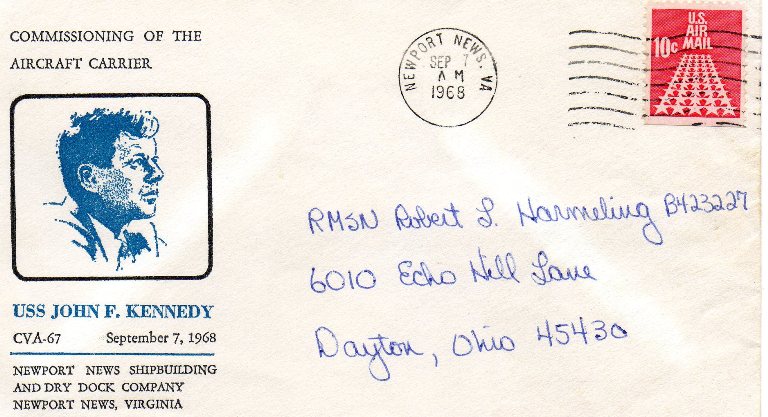 COMMISSIONING OF THE
AIRCRAFT CARRIER
USS JOHN F. KENNEDY
CVA-67 September 7, 1968
NEWPORT NEWS SHIPBUILDING
AND DRY DOCK COMPANY
NEWPORT NEWS, VIRGINIA
NEWPORT NEWS, VA
SEP 7
AM
1968
U.S.
AIR
10c MAIL
RMSN Robert L. Harmeling B423227
6010 Echo Hill Lane
Dayton, Ohio 45430